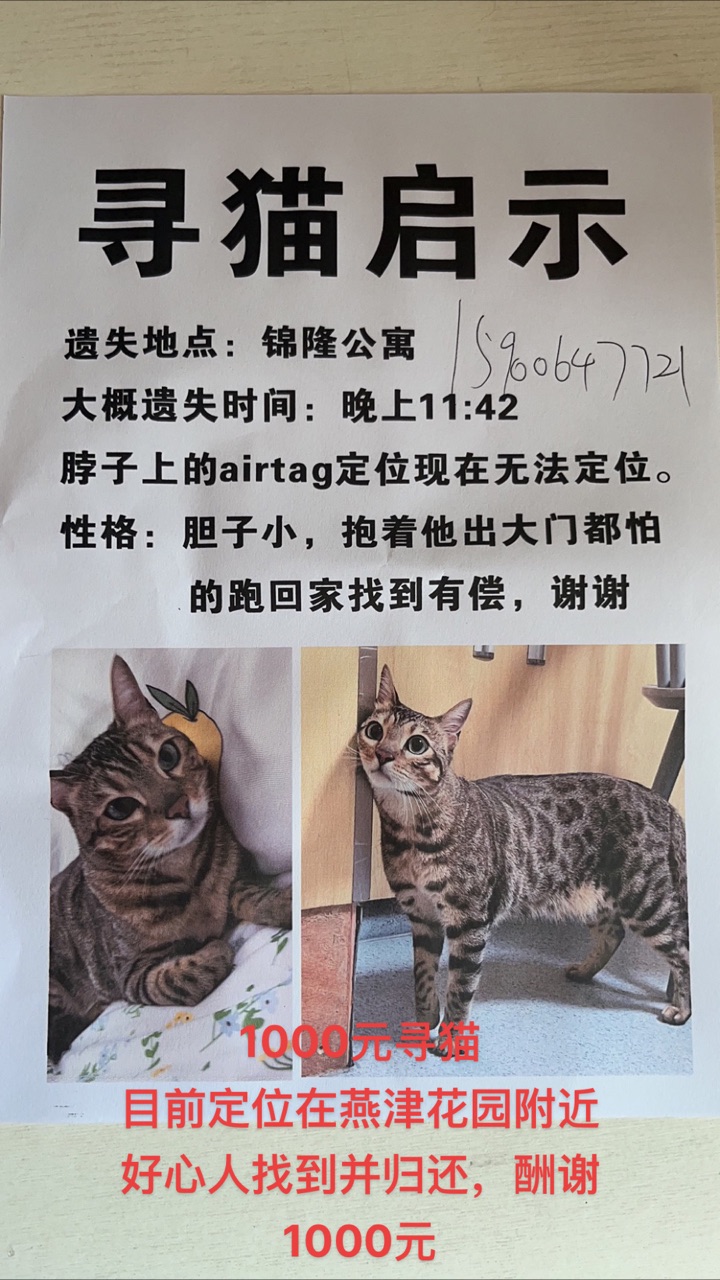 寻猫启示
遗失地点：锦隆公寓
15900647721
大概遗失时间：晚上11:42
脖子上的airtag定位现在无法定位。
性格：胆子小，抱着他出大门都怕
的跑回家找到有偿，谢谢
1000元寻猫
目前定位在燕津花园附近
好心人找到并归还，酬谢
1000元